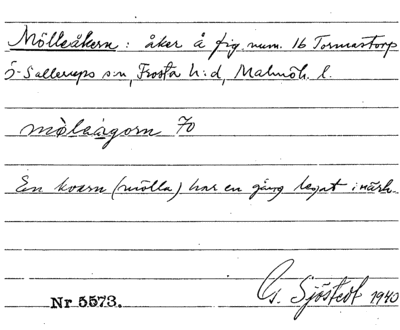 Mölleåkern: åker å fig. num. 16 Tormastorp
Ö-Sallerups s:n, Frosta h:d, Malmöh. l.
mölaågorn 70
En kvarn (mölla) har en gång legat i närh.
G. Sjöstedt 1940
Nr 5573.